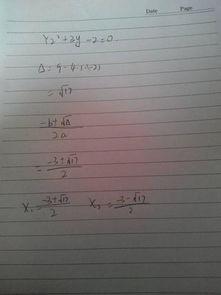 Date Page
Y2²+3y-2=0
Δ=9-4·(-2)
=√17
-b±√Δ / 2a
=-3±√17 / 2
X₁=-3+√17 / 2 X₂=-3-√17 / 2